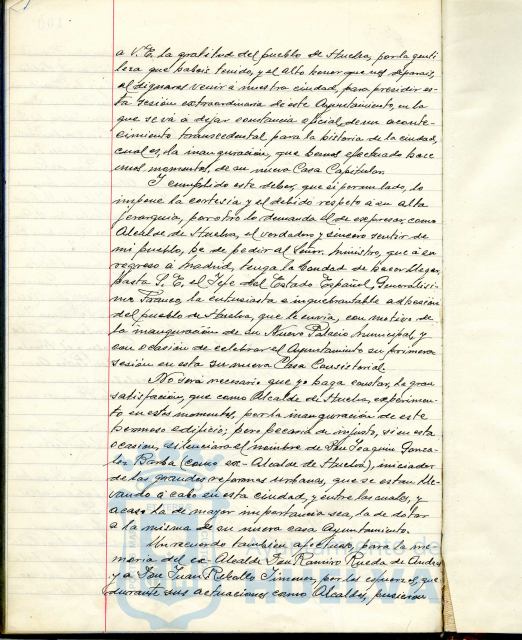 a V.E. la gratitud del pueblo de Huelva, por la genti
leza que habeis tenido, y el alto honor que nos deparais,
al dignaros venir a nuestra ciudad, para presidir es-
ta sesión extraordinaria de este Ayuntamiento, en la
que se vá a dejar constancia oficial, de un aconte-
cimiento transcedental para la historia de la ciudad,
cual es, la inauguración, que hemos efectuado hace
unos momentos, de su nueva Casa Capitular.
Y cumplido este deber, que si por un lado, lo
impone la cortesia y el debido respeto a su alta
jerarquia, por otro lo demanda el de expresar, como
Alcalde de Huelva, el verdadero y sincero sentir de
mi pueblo, he de pedir al Señor Ministro, que a su
regreso a Madrid, tenga la bondad de hacer llegar
hasta S.E. el Jefe del Estado Español, Generalisi-
mo Franco, la entusiasta e inquebrantable adhesión
del pueblo de Huelva, que le envia, con motivo de
la inauguración de su Nuevo Palacio Municipal, y
con ocasión de celebrar el Ayuntamiento su primera
sesión en esta su nueva Casa Consistorial.
No será necesario que yo haga constar, la gran
satisfacción, que como Alcalde de Huelva, experimen-
to en estos momentos, por la inauguración de este
hermoso edificio; pero pecaria de injusto, si en esta
ocasion, silenciara el nombre de Don Joaquin Gonza-
lez Barba (como ex-Alcalde de Huelva), iniciador
de las grandes reformas urbanas, que se estan lle-
vando a cabo en esta ciudad, y entre las cuales, y
acaso la de mayor importancia sea, la de dotar
a la misma de su nueva casa Ayuntamiento.
Un recuerdo tambien afectuoso, para la me-
moria del ex-Alcalde Don Ramiro Rueda de Andres
y a Don Juan Rebollo Jimenez, por los esfuerzos, que
durante sus actuaciones como Alcaldes, pusieron
Ayuntamiento de
HUELVA